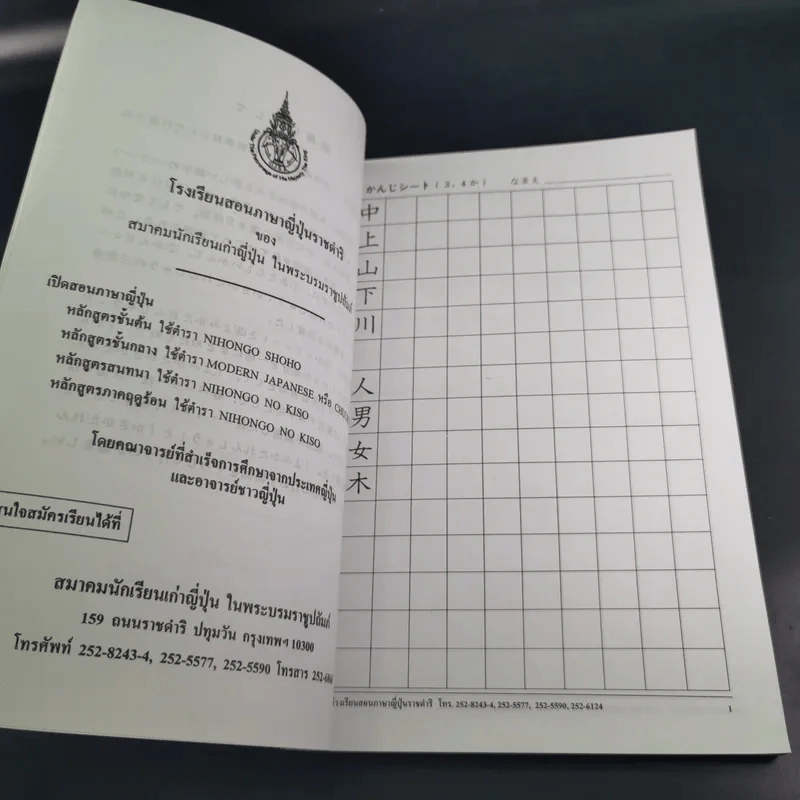 Under The Patronage of His Majesty The King
โรงเรียนสอนภาษาญี่ปุ่นราชดำริ
ของ
สมาคมนักเรียนเก่าญี่ปุ่น ในพระบรมราชูปถัมภ์
เปิดสอนภาษาญี่ปุ่น
หลักสูตรชั้นต้น ใช้ตำรา NIHONGO SHOHO
หลักสูตรชั้นกลาง ใช้ตำรา MODERN JAPANESE หรือ
หลักสูตรสนทนา ใช้ตำรา NIHONGO NO KISO
หลักสูตรภาคฤดูร้อน ใช้ตำรา NIHONGO NO KISO
โดยคณาจารย์ที่สำเร็จการศึกษาจากประเทศญี่ปุ่น
และอาจารย์ชาวญี่ปุ่น
นใจสมัครเรียนได้ที่
สมาคมนักเรียนเก่าญี่ปุ่น ในพระบรมราชูปถัมภ์
159 ถนนราชดำริ ปทุมวัน กรุงเทพฯ 10300
โทรศัพท์ 252-8243-4, 252-5577, 252-5590 โทรสาร
かんじシート (3、4か) なまえ
中
上
山
下
川
人
男
女
木
โรงเรียนสอนภาษาญี่ปุ่นราชดำริ โทร. 252-8243-4, 252-5577, 252-5590, 252-6124
1